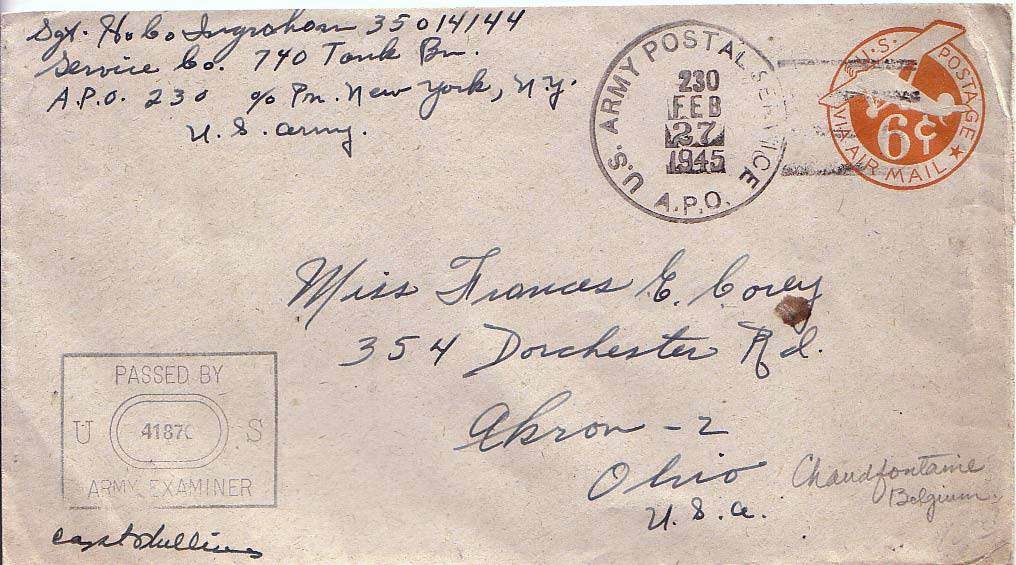 Sgt. Ho Co Ingraham 35014144
Service Co. 740 Tank Bn.
A.P.O. 230 c/o Pm. New York, N.Y.
U.S. Army.
U.S. ARMY POSTAL SERVICE
230
FEB
27
1945
A.P.O.
U.S. POSTAGE
6¢
VIA AIR MAIL
Miss Frances E. Corey
354 Dorchester Rd.
Akron - 2
Ohio
U.S.A.
PASSED BY
U 4187 S
ARMY EXAMINER
Capt
Chaudfontaine
Belgium.